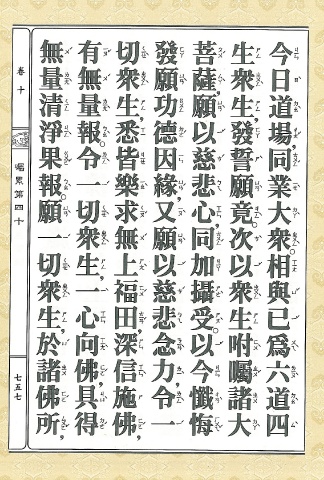 今日道場,同業大衆。相與已爲六道四
生衆生,發誓願竟。次以衆生咐囑諸大
菩薩,願以慈悲心,同加攝受。以今懺悔
發願功德因緣,又願以慈悲念力,令一
切衆生,悉皆樂求無上福田,深信施佛,
有無量報。令一切衆生,一心向佛,具得
無量清淨果報。願一切衆生,於諸佛所,
卷十
囑累第四十
七五七